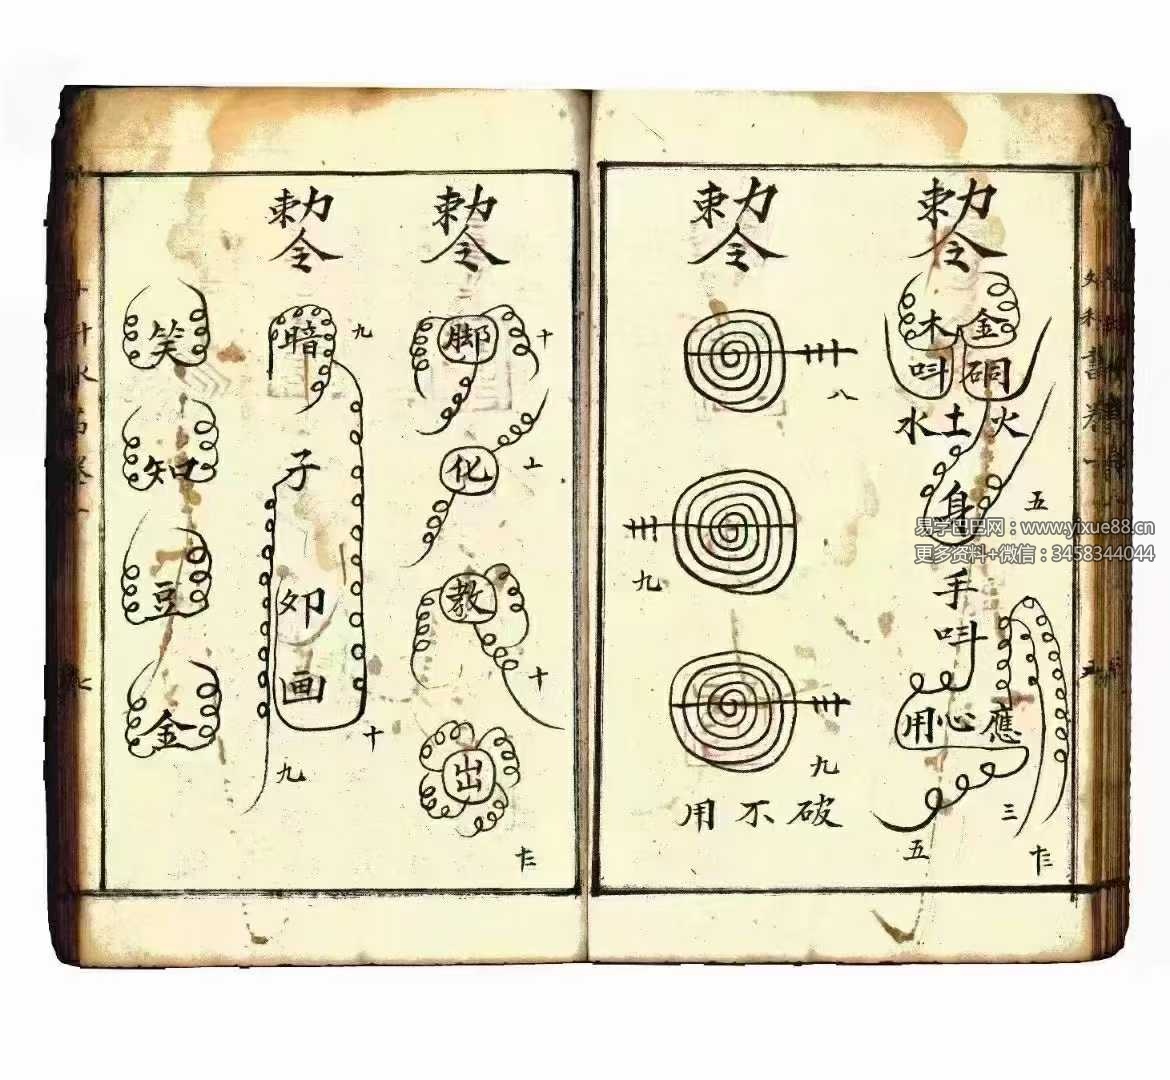 勅令
金木
硐呌
火土水
身
五
手
呌
應心用
三
五
十三
勅令
八
九
九
破不用
勅令
脚
十
化
教
十
出
十三
勅令
暗
九
子
卯
画
十
九
笑
知
豆
金
易学巴巴网：www.yixue88.cn
更多资料+微信：3458344044